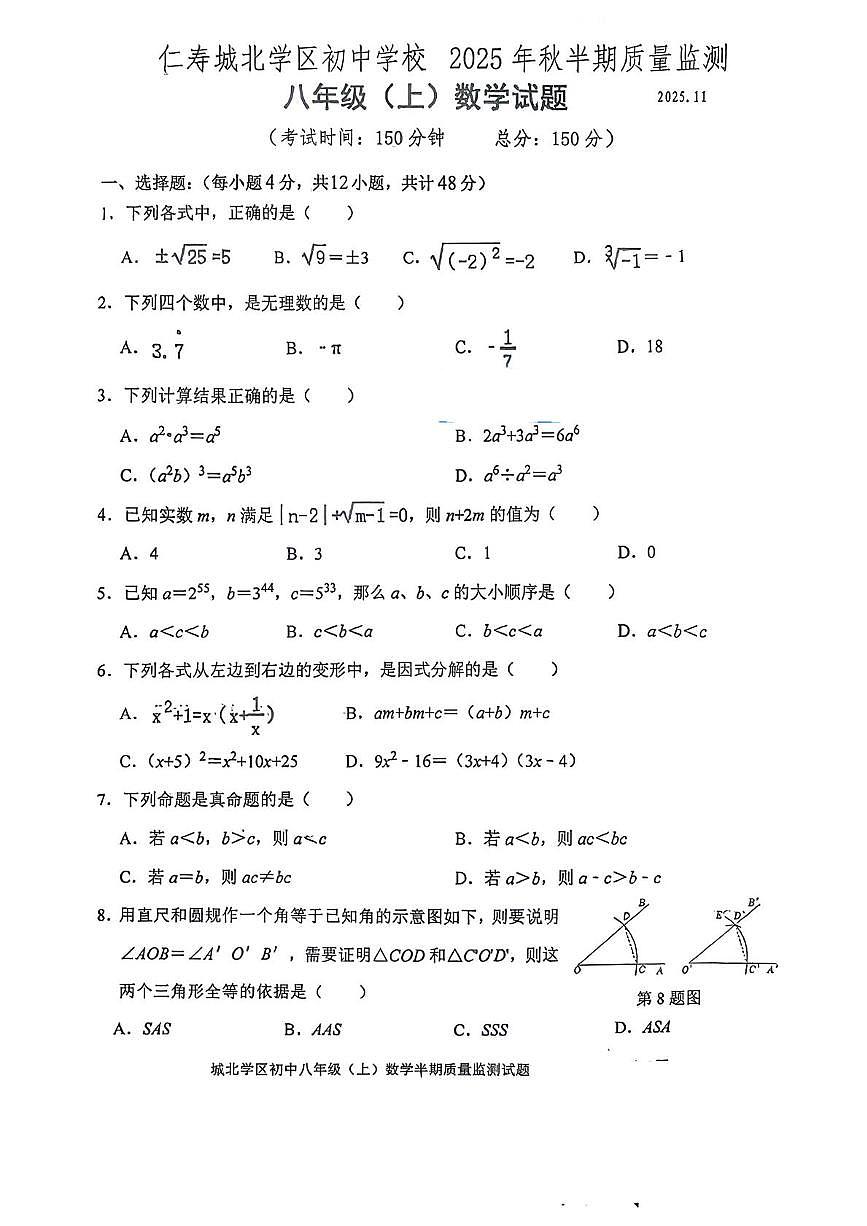 仁寿城北学区初中学校 2025年秋半期质量监测
八年级（上）数学试题 2025.11
（考试时间：150分钟 总分：150分）
一、选择题：（每小题4分，共12小题，共计48分）
1．下列各式中，正确的是（ ）
A．±√25=5 B．√9=±3 C．√(-2)²=-2 D．∛-1=-1
2．下列四个数中，是无理数的是（ ）
A．3.7̇ B．-π C．-1/7 D．18
3．下列计算结果正确的是（ ）
A．a²•a³=a⁵ B．2a³+3a³=6a⁶
C．（a²b）³=a⁵b³ D．a⁶÷a²=a³
4．已知实数m，n满足|n-2|+√m-1=0，则n+2m的值为（ ）
A．4 B．3 C．1 D．0
5．已知a=2⁵⁵，b=3⁴⁴，c=5³³，那么a、b、c的大小顺序是（ ）
A．a<c<b B．c<b<a C．b<c<a D．a<b<c
6．下列各式从左边到右边的变形中，是因式分解的是（ ）
A．x²+1=x·(x+1/x) B．am+bm+c=（a+b）m+c
C．（x+5）²=x²+10x+25 D．9x²-16=（3x+4）（3x-4）
7．下列命题是真命题的是（ ）
A．若a<b，b>c，则a<c B．若a<b，则ac<bc
C．若a=b，则ac≠bc D．若a>b，则a-c>b-c
8．用直尺和圆规作一个角等于已知角的示意图如下，则要说明
∠AOB=∠A'O'B'，需要证明△COD和△C'O'D'，则这
两个三角形全等的依据是（ ）
B D O C A
B' E D' O' C' A'
第8题图
A．SAS B．AAS C．SSS D．ASA
城北学区初中八年级（上）数学半期质量监测试题